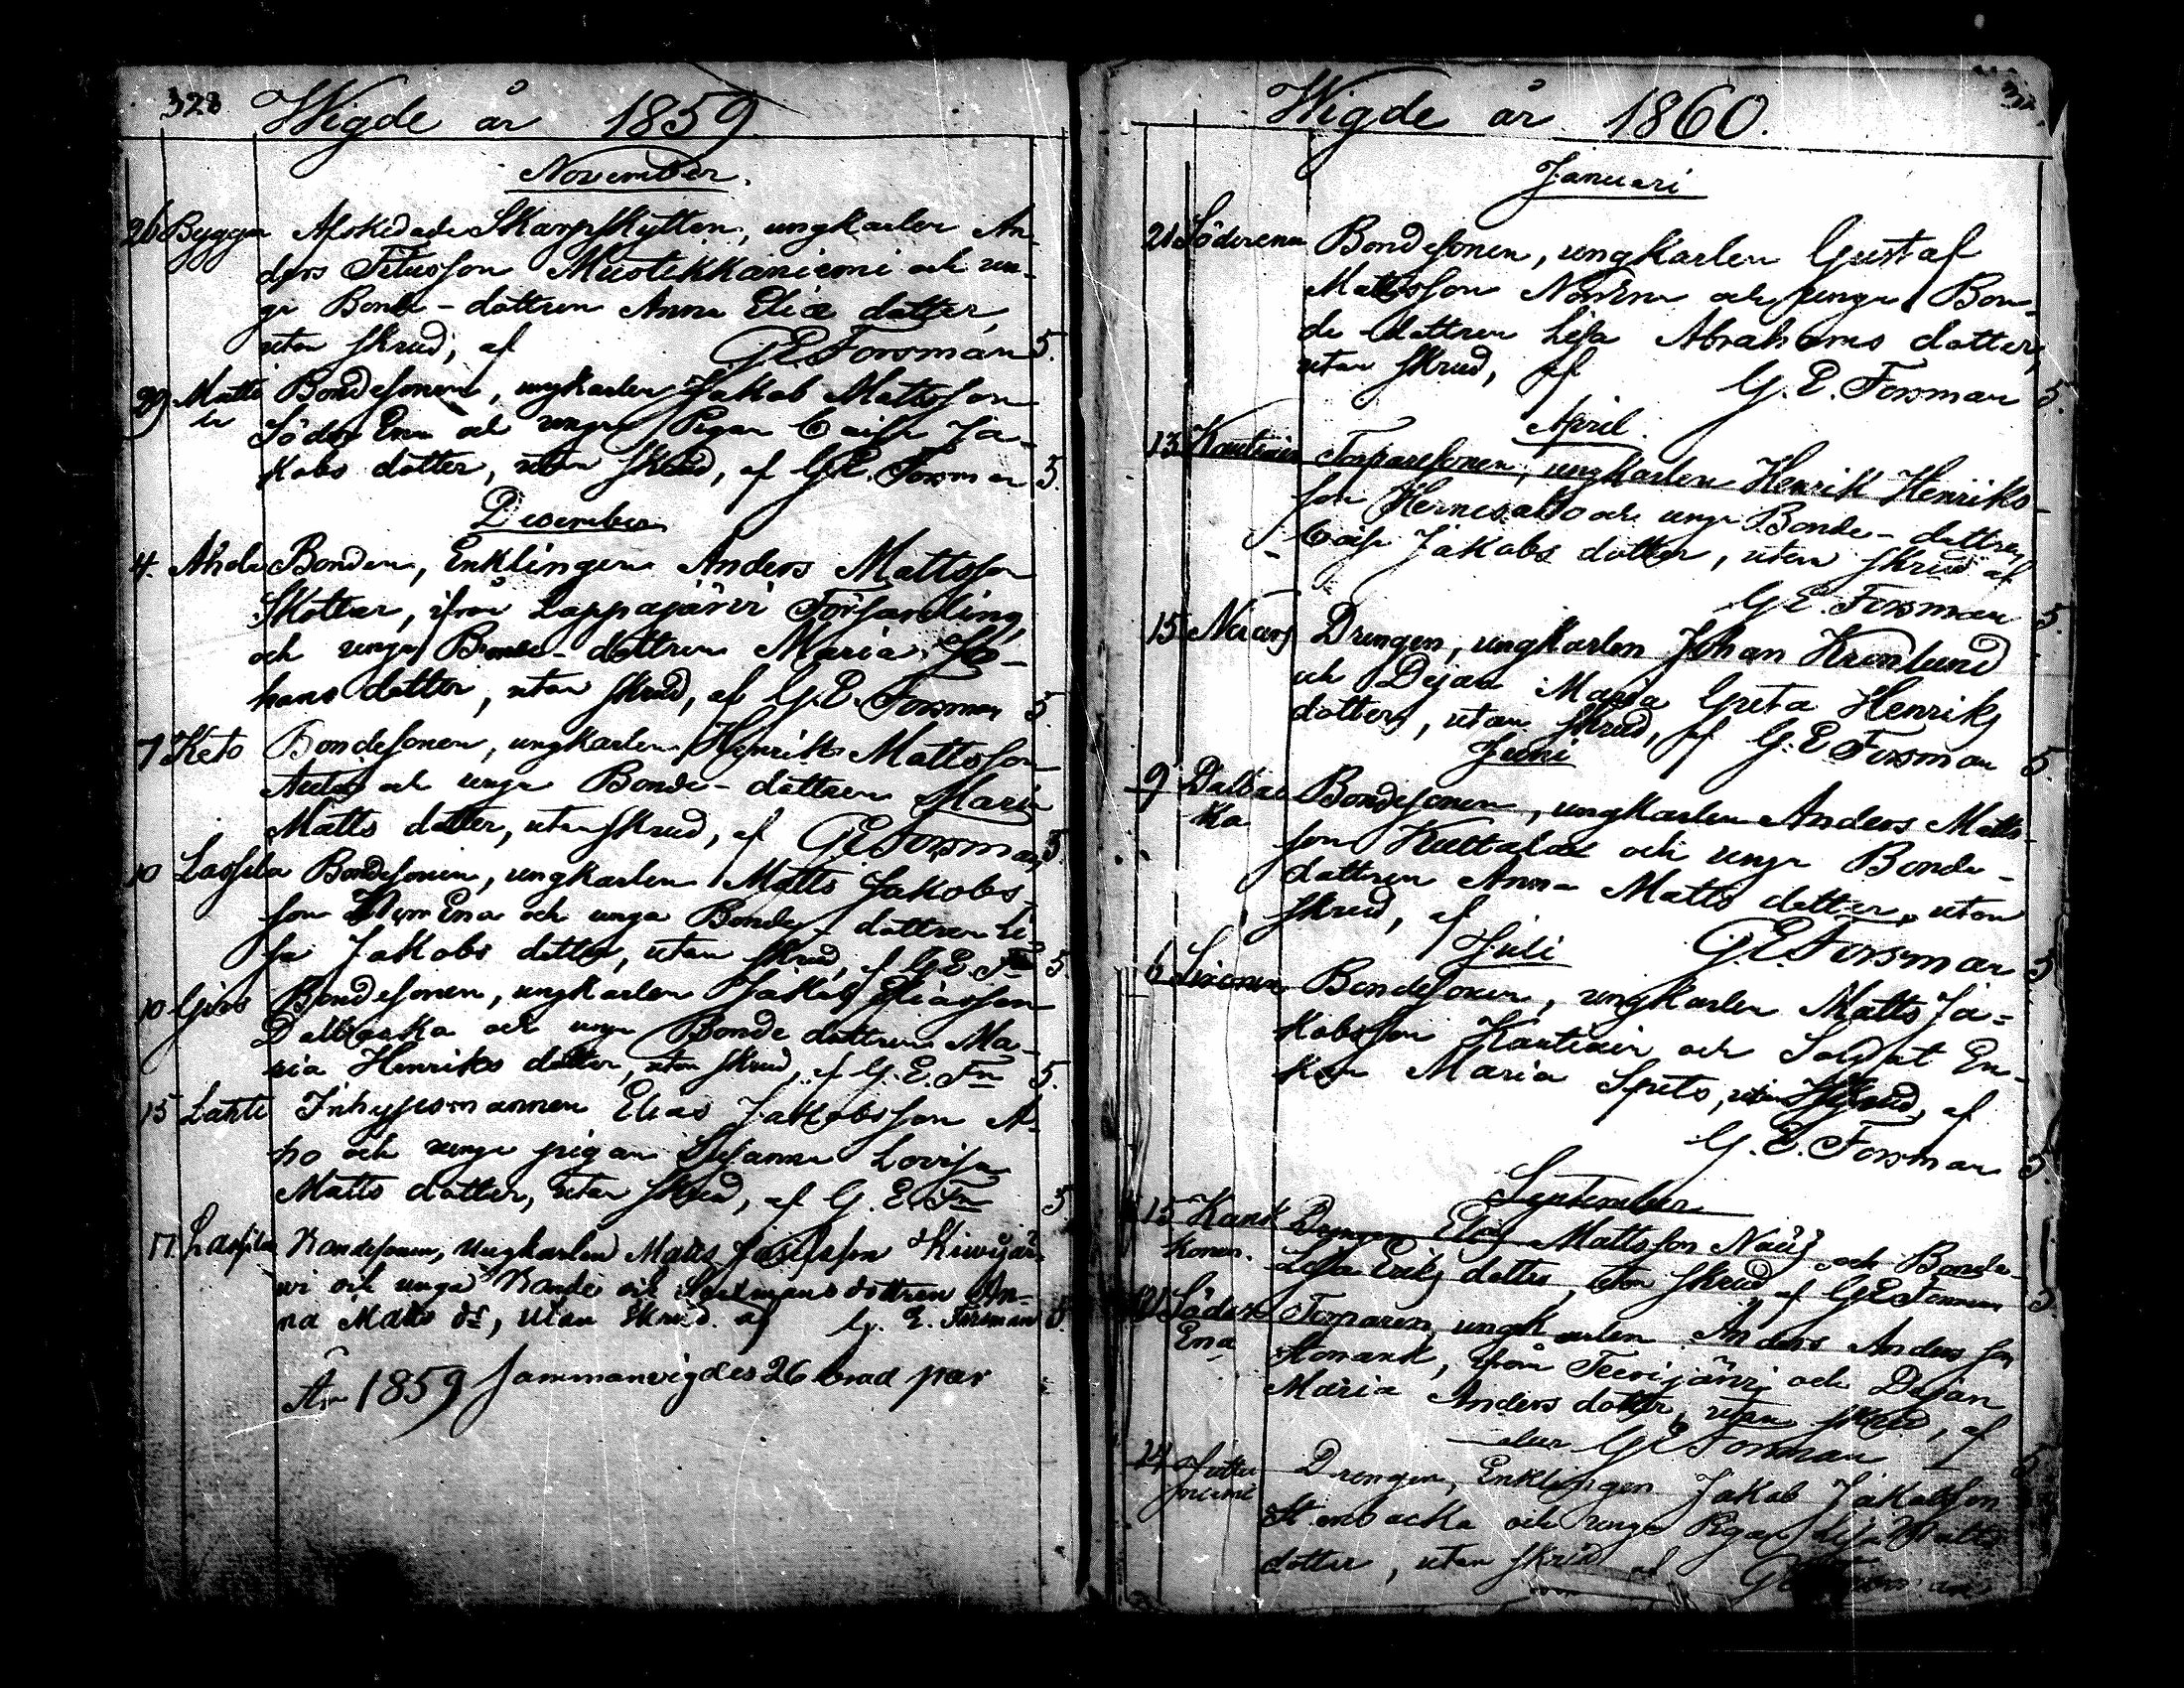 328
Wigde år 1859
November.
26 Byggar Afskedade Skarpskytten, ungkarlen An-
ders Titusson Mustikkaniemi och un-
ga Bonde-dottren Anna Eliæ dotter,
utan skrud, af G.E. Forsman 5.
29 Matti Bondesonen, ungkarlen Jakob Mattsson
Söder Ena och unga Pigan Caisa Ja-
kobs dotter, utan skrud, af G.E. Forsman 5.
December
4. Ahola Bonden, Enklingen Anders Mattsson
Skottar, ifrån Lappajärvi Församling,
och unga Bonde-dottren Maria Jo-
hans dotter, utan skrud, af G.E. Forsman 5.
7 Keto Bondesonen, ungkarlen Henrik Mattsson
och unga Bonde-dottren Maria
Matts dotter, utan skrud, af G.E. Forsman 5.
10 Lassila Bondesonen, ungkarlen Matts Jakobs-
son Ena och unga Bonde-dottren Li-
sa Jakobs dotter, utan skrud, af G.E. Fn 5.
10 Gjers Bondesonen, ungkarlen Jakob Eliasson
Dalbacka och unga Bonde dottren Ma-
ria Henriks dotter, utan skrud, af G.E. Fn 5.
15 Lahti Inhysesmannen Elias Jakobsson A-
ho och unga pigan Susanna Lovisa
Matts dotter, utan skrud, af G.E. Fn 5
17 Lassila Bondesonen, Ungkarlen Matts Josefsson Kiwijär-
wi och unga Bonde och dottren An-
na Matts dr, utan Skrud. af G. E. Forsman 8.
År 1859 sammanvigdes 26 brud par
Wigde år 1860.
Januari
21 Söderena Bondesonen, ungkarlen Gustaf
Mattsson Norrena och unga Bon-
de-dottren Lisa Abrahams dotter,
utan skrud, af G. E. Forsman 5.
April.
13 Kautiain Torparesonen, ungkarlen Henrik Henriks-
son Hernesaho och unga Bonde-dottren
Caisa Jakobs dotter, utan skrud af
G.E. Forsman 5.
15 Drengen, ungkarlen Johan Kronlund
och Dejan Maria Greta Henriks
dotter, utan skrud, af G.E. Forsman 5.
Juni
9 Dalbac Bondesonen, ungkarlen Anders Matts-
ka son och unga Bonde-
dottren Anna Matts dotter, utan
skrud, af G.E. Forsman 5
Juli
6 Bondesonen, ungkarlen Matts Ja-
kobsson Kautiain och Soldat En-
kan Maria Spets, utan skrud, af
G.E. Forsman 5.
September
15 Kank Drengen Elias Mattsson och Bonde-
konen. Lisa Eriks dotter, utan skrud, af G.E. Forsman 5
21 Söder Torparen, ungkarlen Anders Andersson
Ena Honank, ifrån Teerijärvi och Dejan
Maria Anders dotter, utan skrud, af
G E Forsman 5
24 Drengen, Enklingen Jakob Jakobsson
Stenbacka och unga Pigan Lisa Matts
dotter, utan skrud af G E Forsman